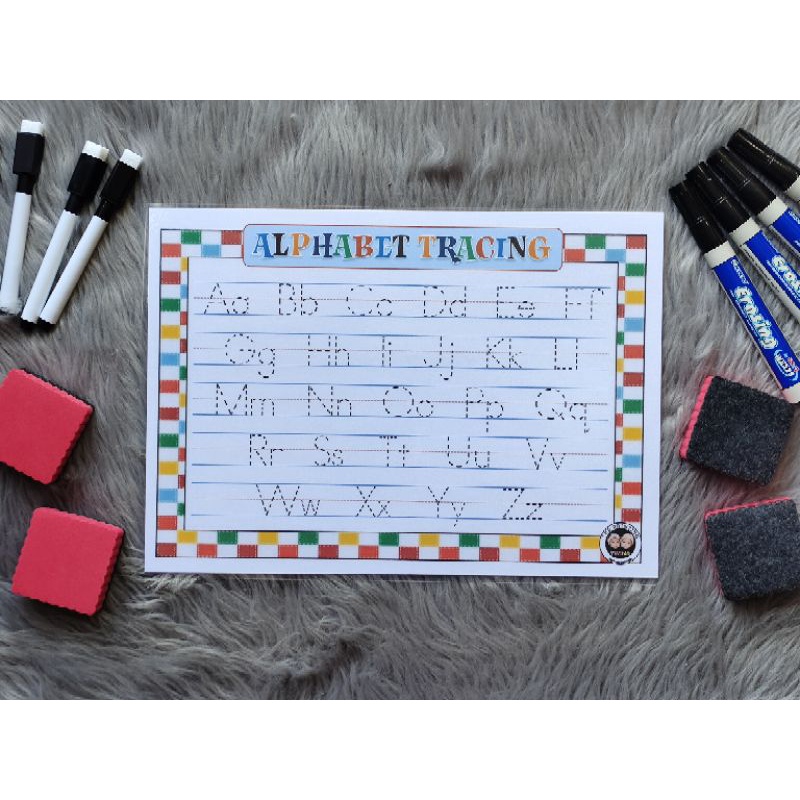 ALPHABET TRACING
Aa Bb Cc Dd Ee Ff
Gg Hh Ii Jj Kk Ll
Mm Nn Oo Pp Qq
Rr Ss Tt Uu Vv
Ww Xx Yy Zz